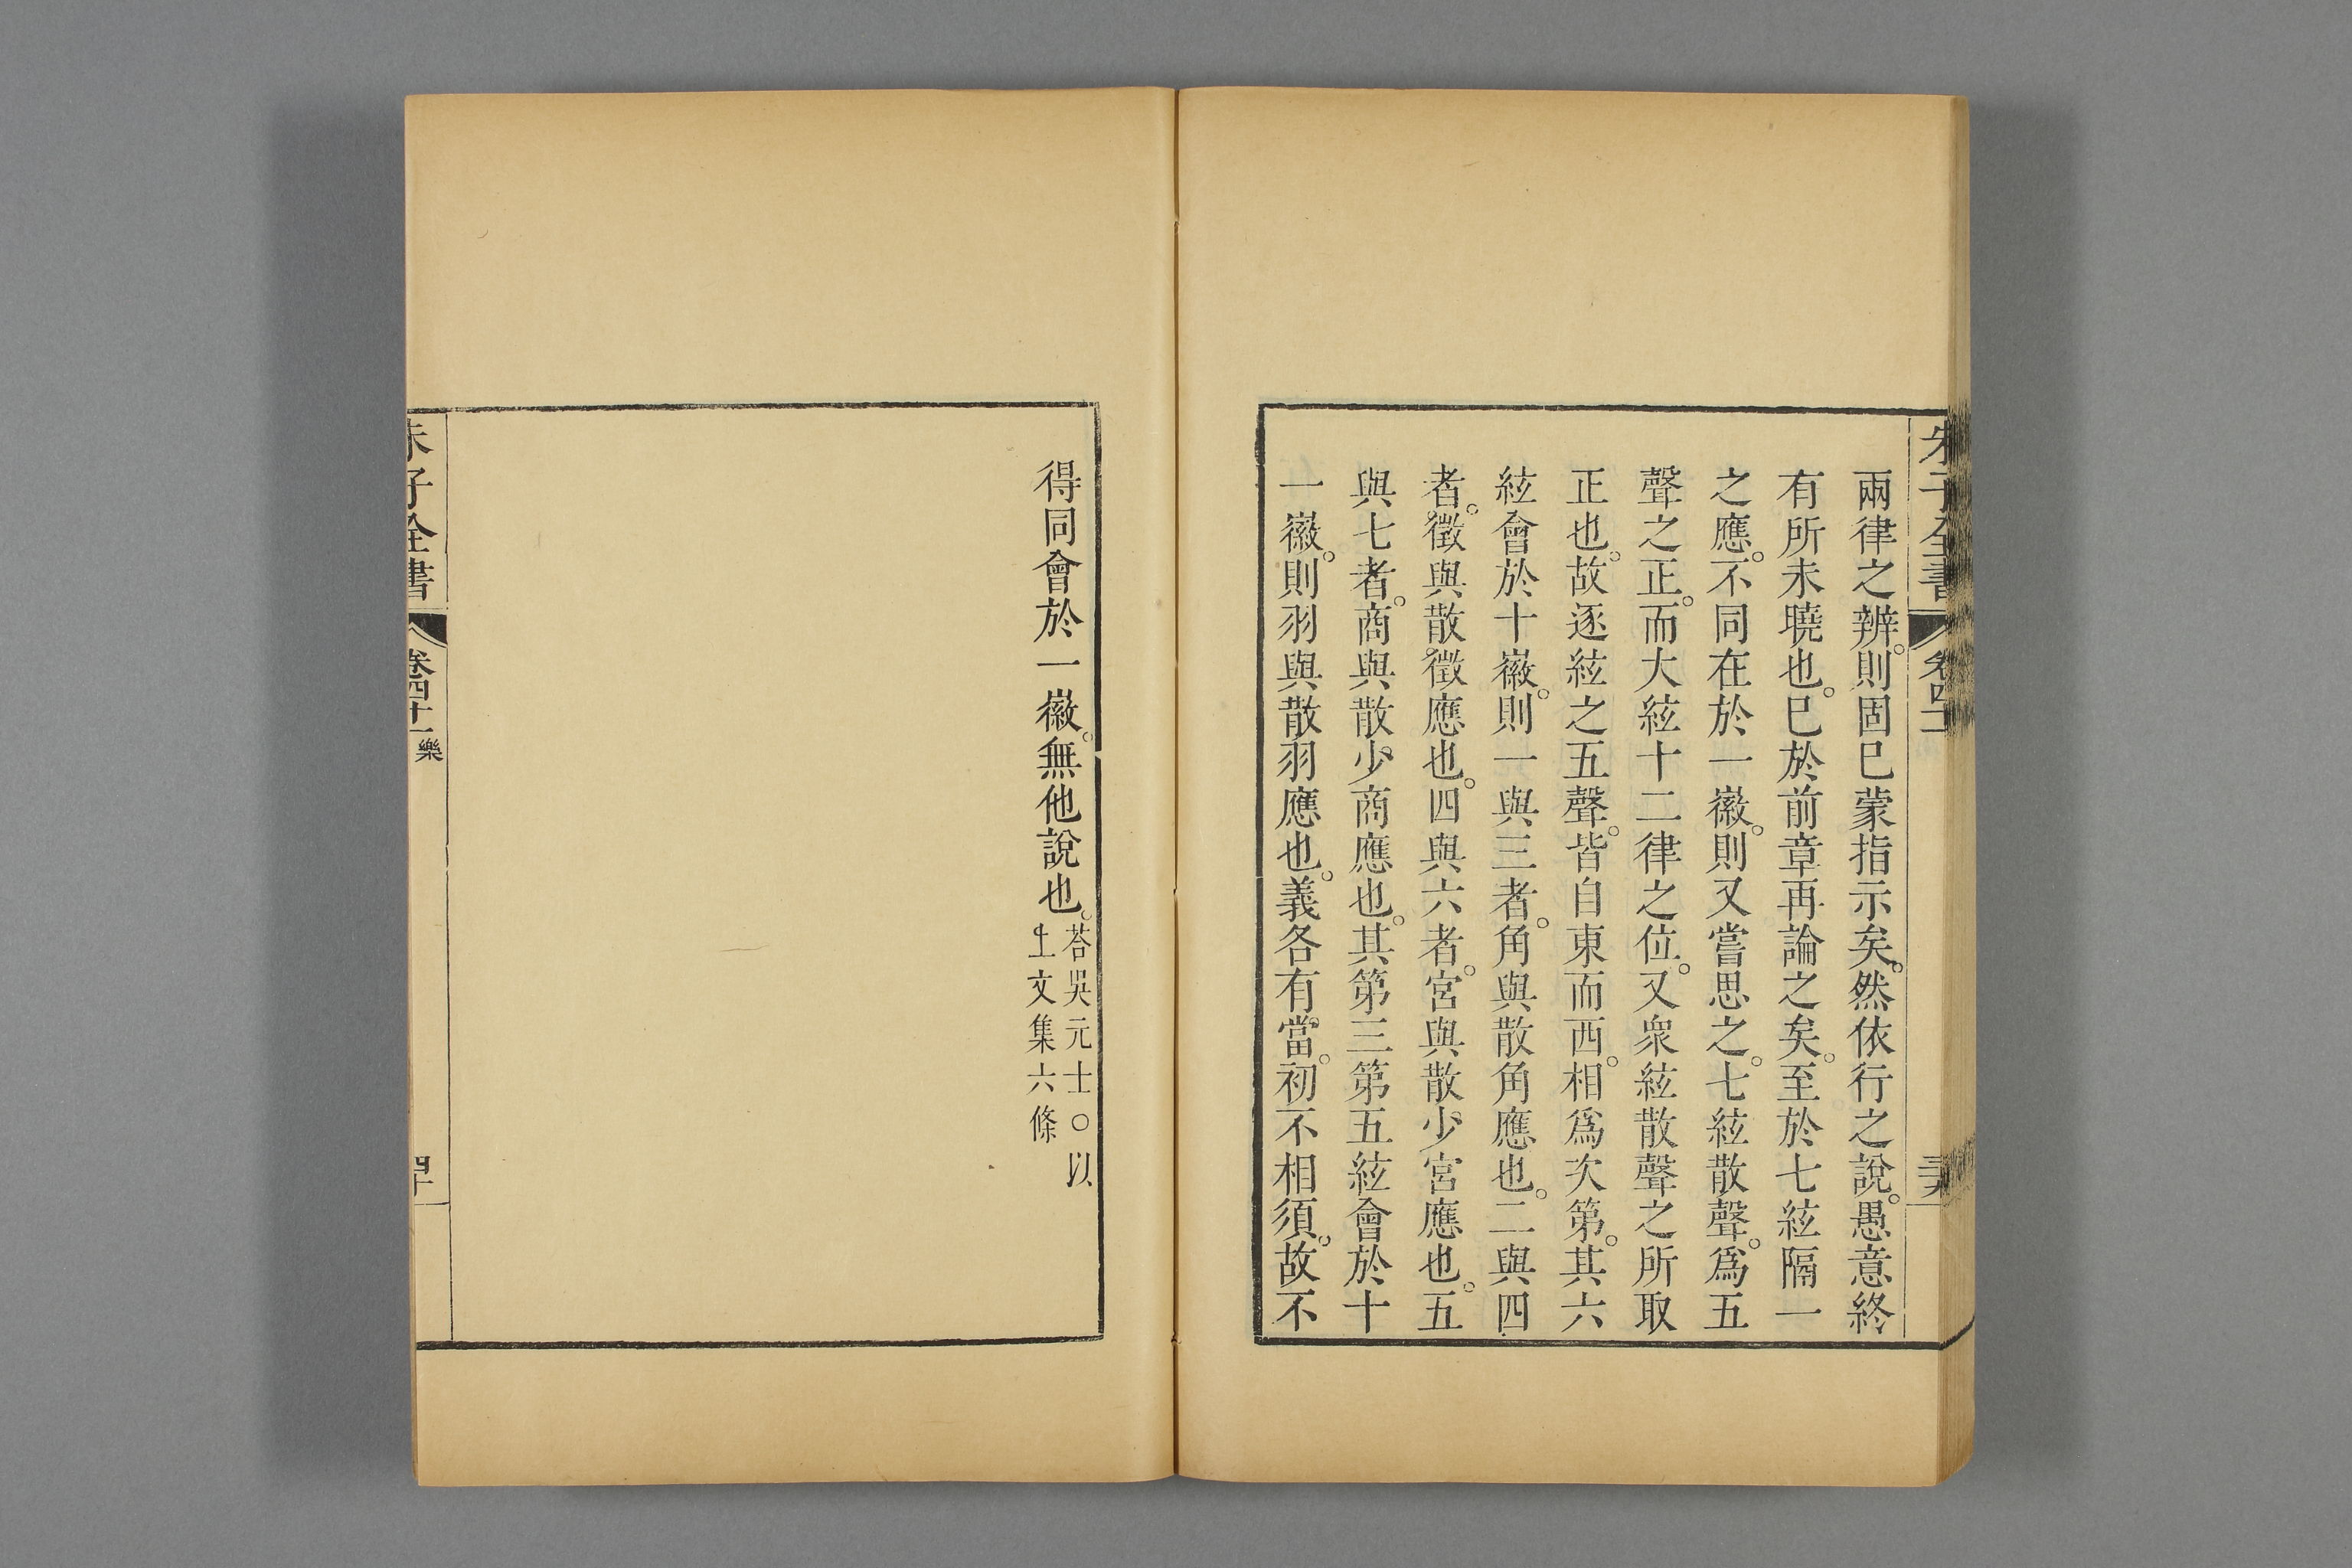 朱子全書 卷四十一 三九
兩律之辨。則固巳蒙指示矣。然依行之說。愚意終
有所未曉也。巳於前章再論之矣。至於七絃隔一
之應。不同在於一徽。則又嘗思之。七絃散聲。爲五
聲之正。而大絃十二律之位。又衆絃散聲之所取
正也。故逐絃之五聲。皆自東而西。相爲次第。其六
絃會於十徽。則一與三者。角與散角應也。二與四
者。徵與散徵應也。四與六者。宮與散少宮應也。五
與七者。商與散少商應也。其第三第五絃會於十
一徽。則羽與散羽應也。義各有當。初不相須。故不
得同會於一徽。無他說也。
荅吳元士○以
上文集六條
朱子全書 卷四十一 樂 四十